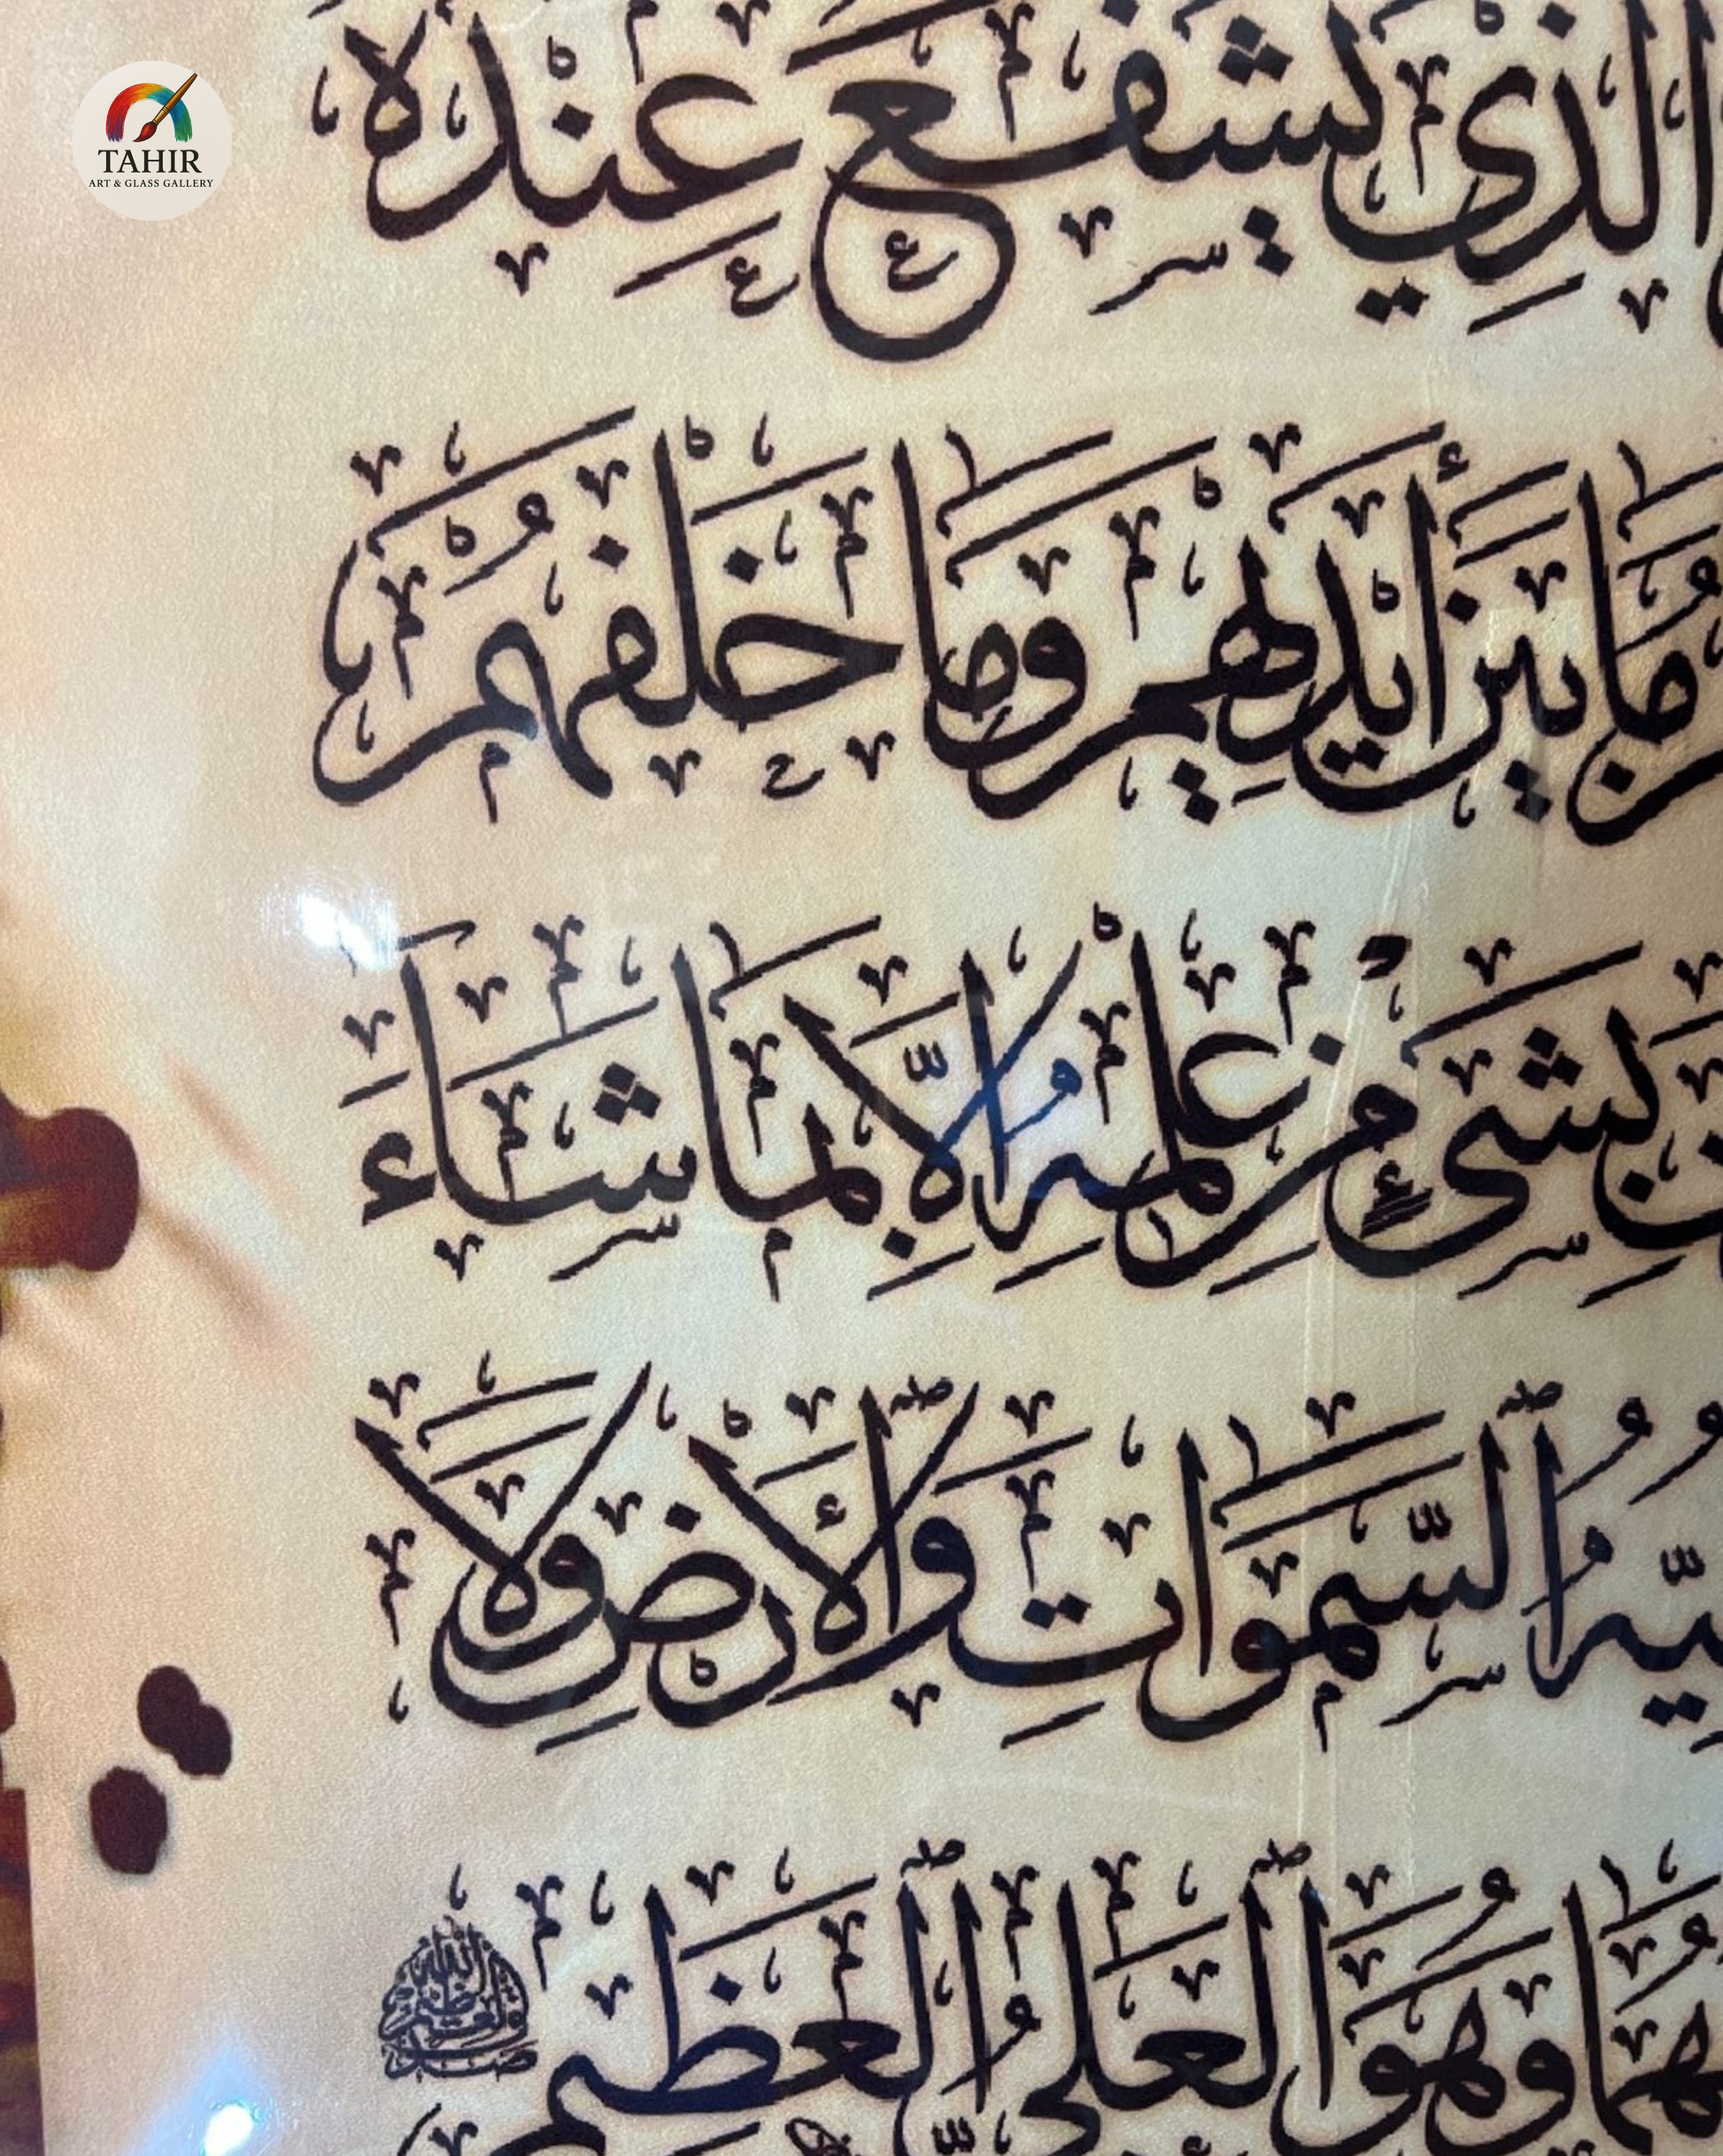 TAHIR
ART & GLASS GALLERY
الَّذِي يَشْفَعُ عِنْدَهُ
مَا بَيْنَ أَيْدِيهِمْ وَمَا خَلْفَهُمْ
بِشَىْءٍ مِنْ عِلْمِهِ اِلَّا بِمَا شَاءَ
السَّمٰوَاتِ وَالْأَرْضَ وَلَا
وَهُوَ الْعَلِىُّ الْعَظِيمُ
صدق الله العظيم